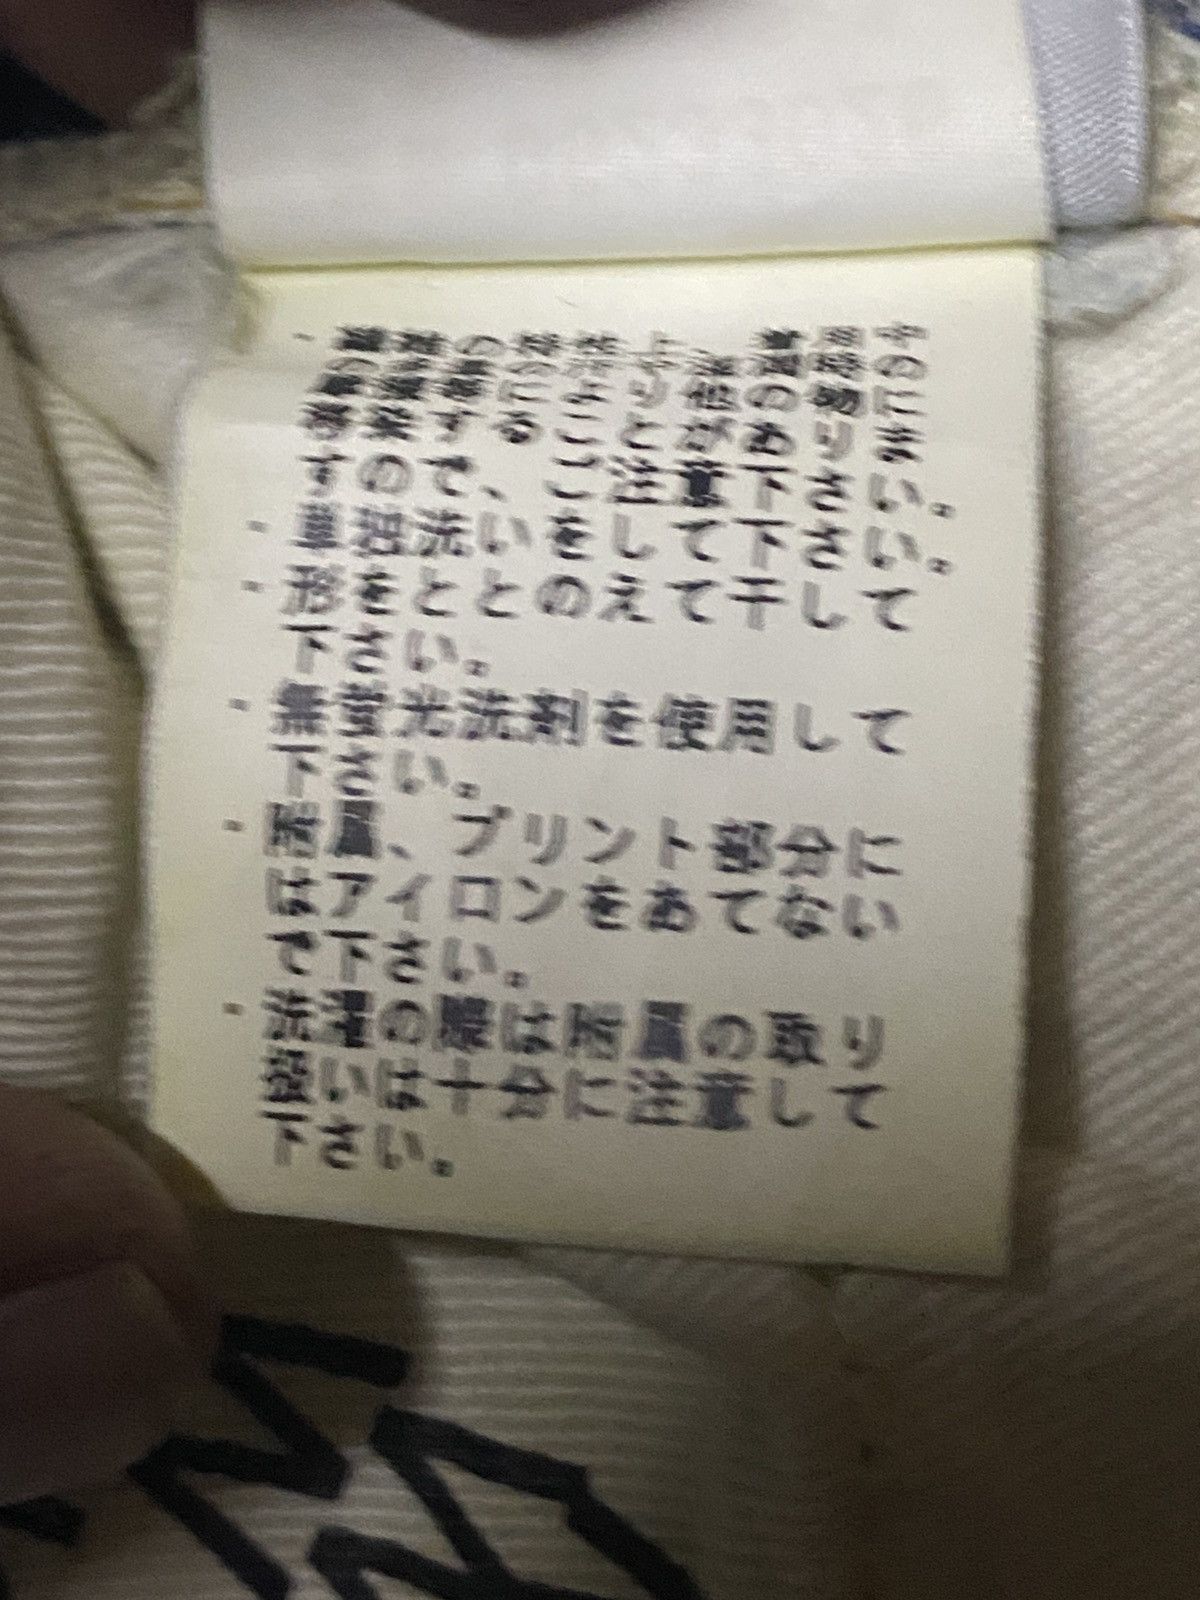 ・繊維の特性上、着用中
の摩擦等により他の物に
移染することがありま
すので、ご注意下さい。
・単独洗いをして下さい。
・形をととのえて干して
下さい。
・無蛍光洗剤を使用して
下さい。
・附属、プリント部分に
はアイロンをあてない
で下さい。
・洗濯の際は附属の取り
扱いは十分に注意して
下さい。